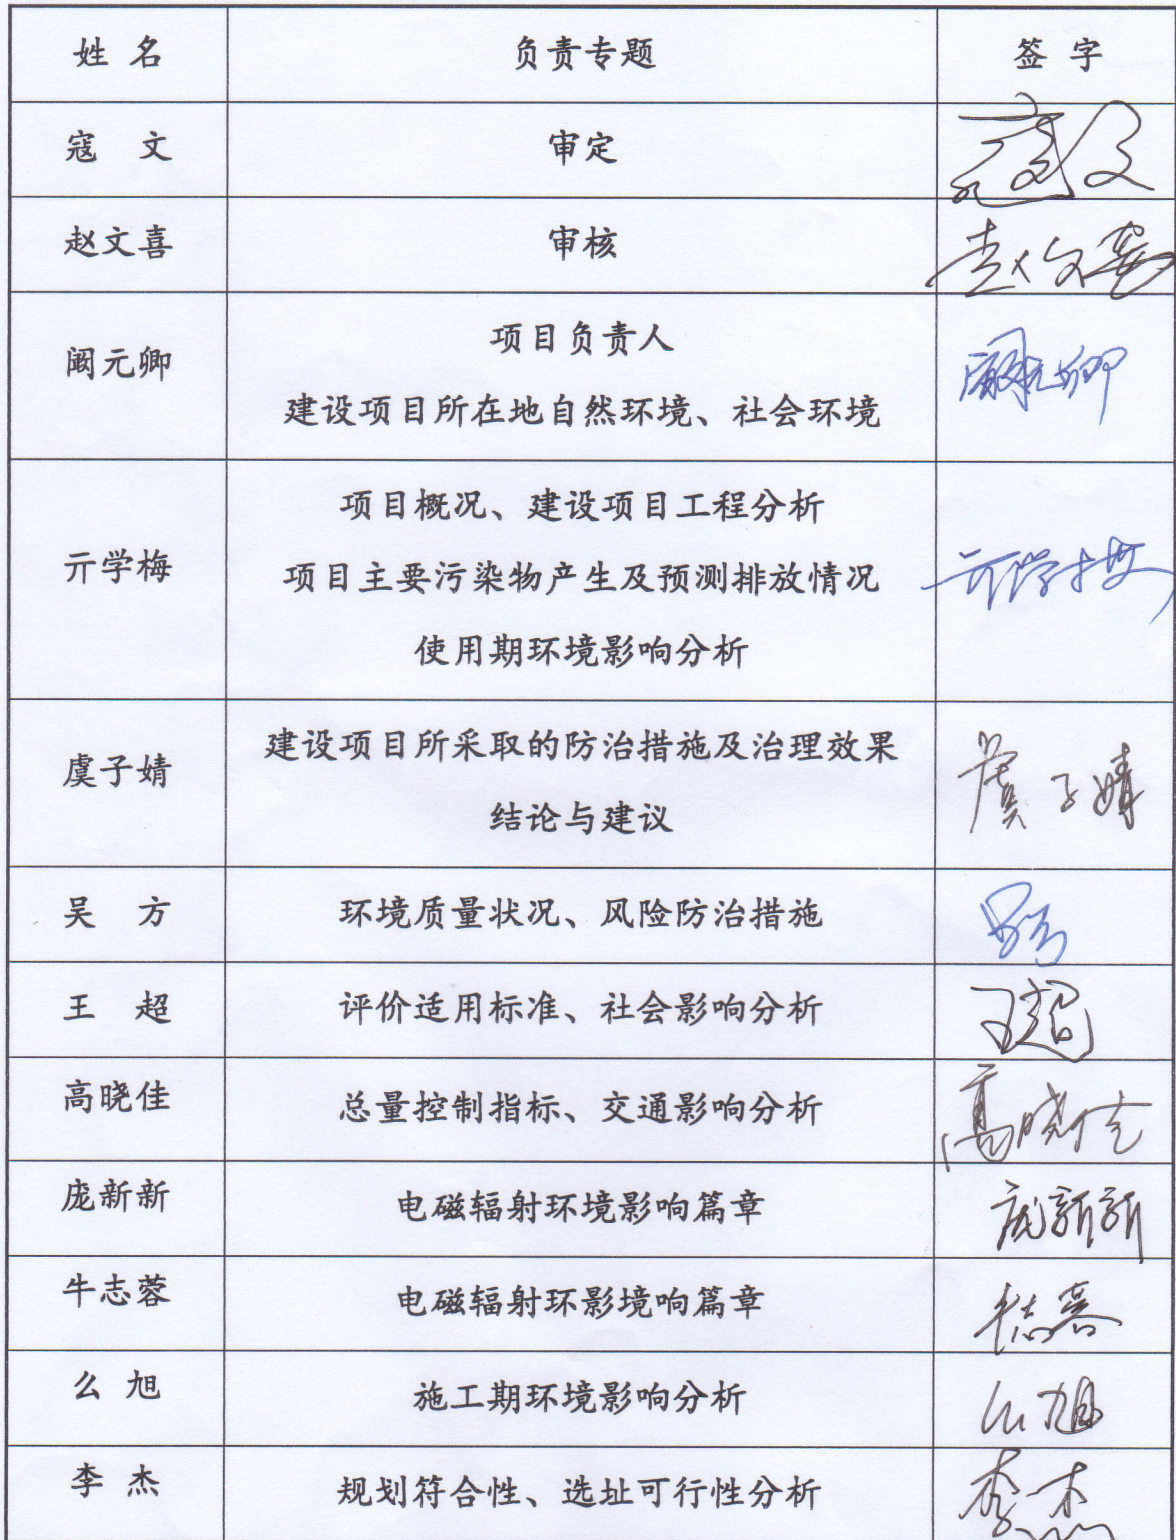 姓 名 负责专题 签 字
寇 文 审定 寇文
赵文喜 审核 赵文喜
项目负责人
阚元卿 阚元卿
建设项目所在地自然环境、社会环境
项目概况、建设项目工程分析
亓学梅 项目主要污染物产生及预测排放情况 亓学梅
使用期环境影响分析
建设项目所采取的防治措施及治理效果
虞子婧 虞子婧
结论与建议
吴 方 环境质量状况、风险防治措施 吴方
王 超 评价适用标准、社会影响分析 王超
高晓佳 总量控制指标、交通影响分析 高晓佳
庞新新 电磁辐射环境影响篇章 庞新新
牛志蓉 电磁辐射环影境响篇章 牛志蓉
么 旭 施工期环境影响分析 么旭
李 杰 规划符合性、选址可行性分析 李杰